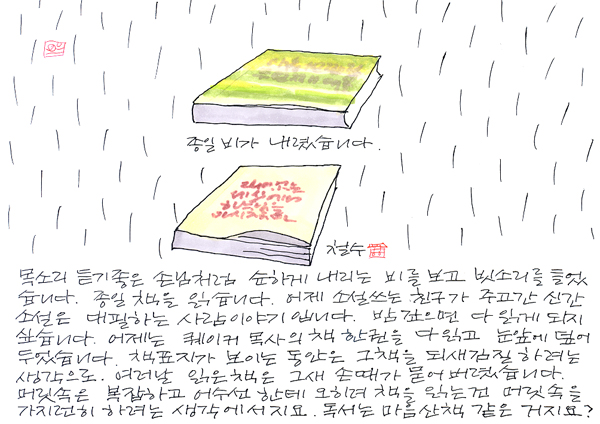 종일 비가 내렸습니다.
철수
목소리 듣기좋은 손님처럼 순하게 내리는 비를 보고 빗소리를 들었
습니다. 종일 책을 읽습니다. 어제 소설쓰는 친구가 주고간 신간
소설은 대필하는 사람이야기 입니다. 밤 깊으면 다 읽게 되지
싶습니다. 어제는 퀘이커 목사의 책 한권을 다 읽고 눈앞에 덮어
두었습니다. 책표지가 보이는 동안은 그책을 되새김질 하려는
생각으로. 여러날 읽은책은 그새 손때가 묻어 버렸습니다.
머릿속은 복잡하고 어수선 한데 오히려 책을 읽는건 머릿속을
가지런히 하려는 생각에서지요. 독서는 마음산책 같은 거지요?